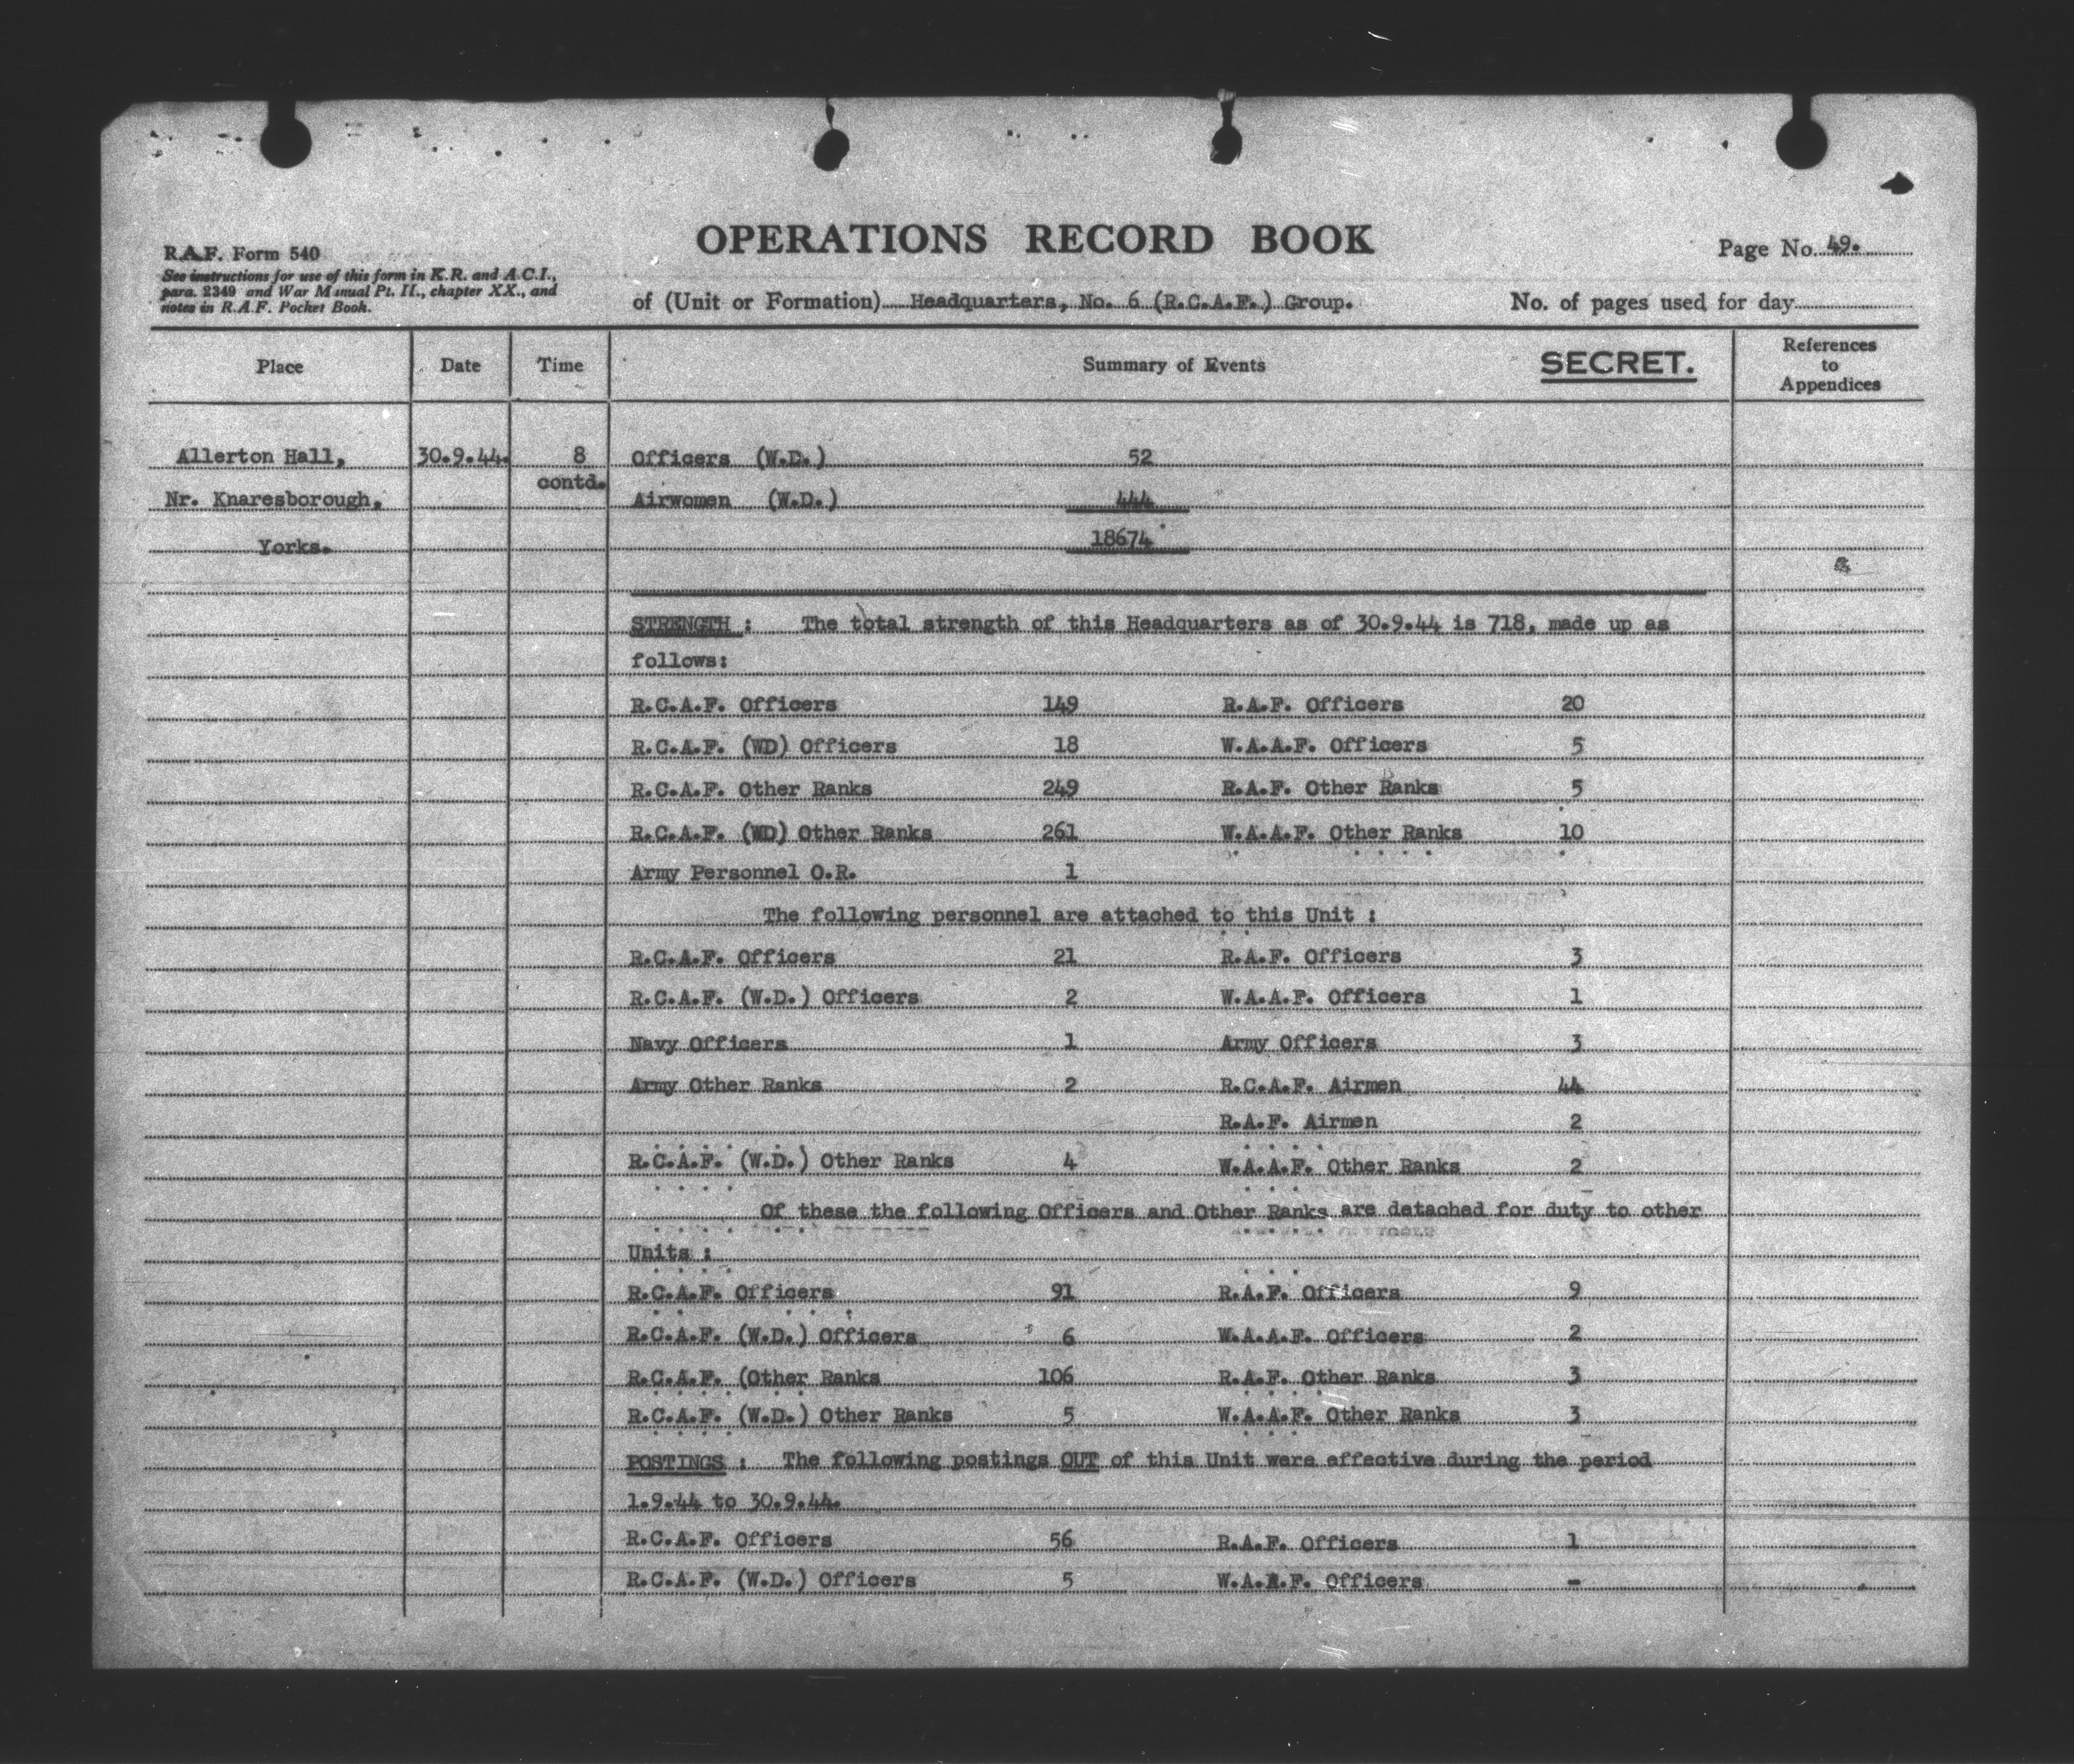 OPERATIONS RECORD BOOK
Page No. 49.
R.A.F. Form 540
See instructions for use of this form in K.R. and A.C.I.,
para. 2349 and War Manual Pt. II., chapter XX., and
notes in R.A.F. Pocket Book.
of (Unit or Formation) Headquarters, No. 6 (R.C.A.F.) Group.
No. of pages used for day
Place Date Time Summary of Events SECRET. References to Appendices
Allerton Hall, 30.9.44. 8 Officers (W.D.) 52
contd.
Nr. Knaresborough, Airwomen (W.D.) 444
Yorks. 18674
STRENGTH : The total strength of this Headquarters as of 30.9.44 is 718, made up as
follows:
R.C.A.F. Officers 149 R.A.F. Officers 20
R.C.A.F. (WD) Officers 18 W.A.A.F. Officers 5
R.C.A.F. Other Ranks 249 R.A.F. Other Ranks 5
R.C.A.F. (WD) Other Ranks 261 W.A.A.F. Other Ranks 10
Army Personnel O.R. 1
The following personnel are attached to this Unit :
R.C.A.F. Officers 21 R.A.F. Officers 3
R.C.A.F. (W.D.) Officers 2 W.A.A.F. Officers 1
Navy Officers 1 Army Officers 3
Army Other Ranks 2 R.C.A.F. Airmen 44
R.A.F. Airmen 2
R.C.A.F. (W.D.) Other Ranks 4 W.A.A.F. Other Ranks 2
Of these the following Officers and Other Ranks are detached for duty to other
Units :
R.C.A.F. Officers 91 R.A.F. Officers 9
R.C.A.F. (W.D.) Officers 6 W.A.A.F. Officers 2
R.C.A.F. (Other Ranks 106 R.A.F. Other Ranks 3
R.C.A.F. (W.D.) Other Ranks 5 W.A.A.F. Other Ranks 3
POSTINGS : The following postings OUT of this Unit were effective during the period
1.9.44 to 30.9.44.
R.C.A.F. Officers 56 R.A.F. Officers 1
R.C.A.F. (W.D.) Officers 5 W.A.A.F. Officers -